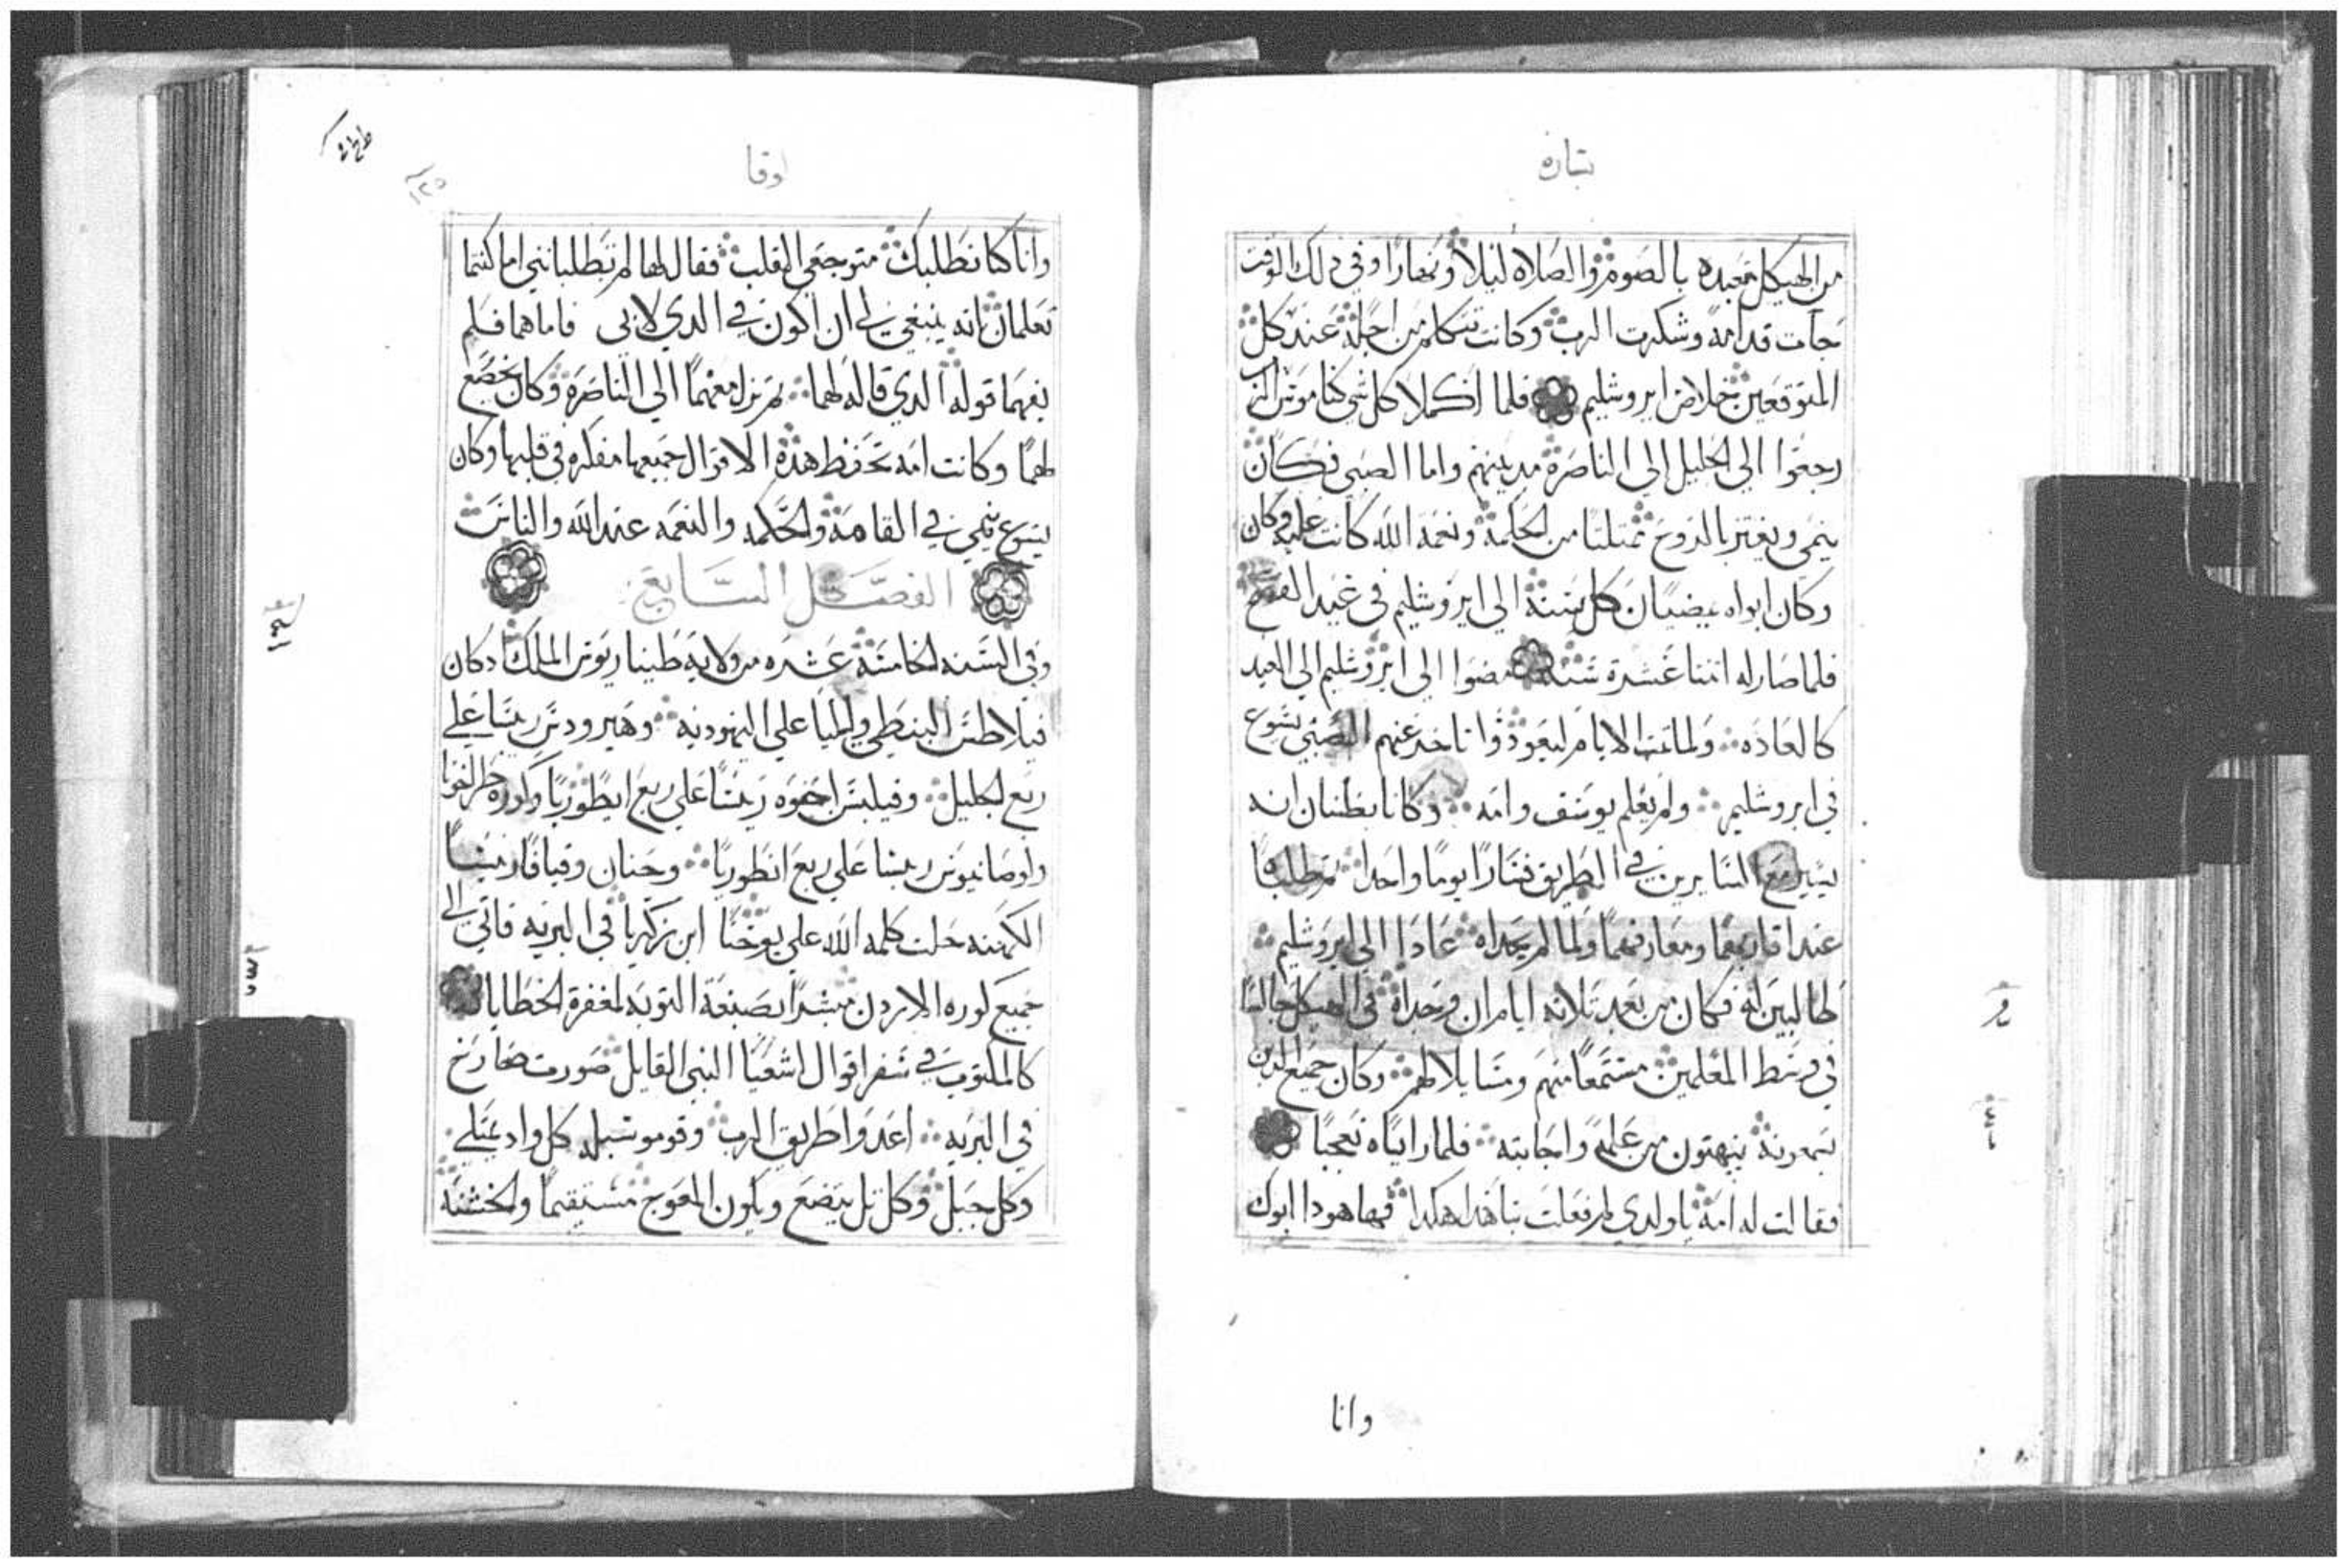 بشاره
من الهيكل متعبده بالصوم والصلاه ليلا ونهارا وفي ذلك الوقت
جات قدامه وشكرت الرب وكانت تتكلم من اجله عند كل
المتوقعين خلاص ايروشليم فلما اكملا كل شي كناموس الرب
رجعوا الي الجليل الي الناصره مدينتهم واما الصبي فكان
ينمي ويعتز بالروح ممتليا من الحكمه ونعمه الله كانت عليه وكان
وكان ابواه يمضيان كل سنه الي ايروشليم في عيد الفصح
فلما صار له اثنتا عشرة سنه مضوا الي ايروشليم الي العيد
كالعاده ولما تمت الايام ليعودوا تاخر عنهم الصبي يسوع
في ايروشليم ولم يعلم يوسف وامه وكانا يظنان انه
يسير مع السايرين في الطريق فسارا يوما واحدا ثم طلباه
عند اقاربهما ومعارفهما ولما لم يجداه عادا الي ايروشليم
طالبين اياه فكان من بعد ثلاثه ايام ان وجداه في الهيكل جالسا
في وسط المعلمين مستمعا منهم ومسايلا لهم وكان جميع الذين
يسمعونه يبهتون من علمه واجابته فلما راياه تعجبا
فقالت له امه يا ولدي لم فعلت بنا هذا هكذا فها هوذا ابوك
وانا
لوقا
وانا كنا نطلبك متوجعي القلب فقال لهما لم تطلباني اما كنتما
تعلمان انه ينبغي لي ان اكون في الذي لابي فاما هما فلم
يفهما قوله الذي قاله لهما ثم نزل معهما الي الناصره وكان يخضع
لهما وكانت امه تحفظ هذه الاقوال جميعها مفكره في قلبها وكان
يسوع ينمي في القامه والحكمه والنعمه عند الله والناس
الفصل السابع
وفي السنه الخامسه عشره من ولايه طيباريوس الملك اذ كان
فيلاطس البنطي واليا علي اليهوديه وهيرودس ريسا علي
ربع الجليل وفيلبس اخوه ريسا علي ربع ايطوريا وكوره
ولوصانيوس ريسا علي ربع انطوريا وحنان وقيافا ريسا
الكهنه حلت كلمه الله علي يوحنا ابن زكريا في البريه فاتي الي
جميع كوره الاردن مبشرا بصبغة التوبه لمغفرة الخطايا
كالمكتوب في سفر اقوال اشعيا النبي القايل صوت صارخ
في البريه اعدوا طريق الرب وقوموا سبله كل واد يمتلي
وكل جبل وكل تل يتضع ويكون المعوج مستقيما والخشنه